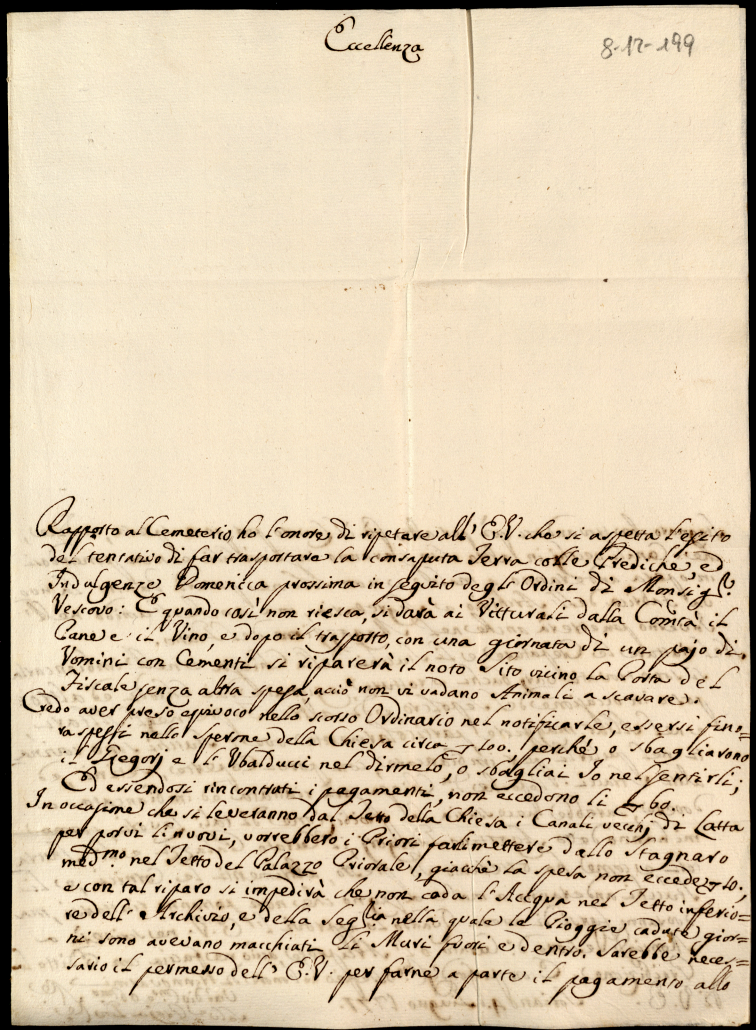 Eccellenza
8-12-199
Rapporto al Cemeterio ho l'onore di ripetere all' E.V. che si aspetta l'esito
del tentativo di far trasportare la consaputa Terra colle Prediche, ed
Indulgenze Domenica prossima in seguito degl' Ordini di Monsigr.
Vescovo: E quando così non riesca, si darà ai Vitturali dalla Comtà il
Pane e il Vino, e dopo il trasporto, con una giornata di un pajo di
Uomini con Cementi si riparerà il noto Sito vicino la Porta del
Fiscale senza altra spesa, acciò non vi vadano Animali a scavare.
Credo aver preso equivoco nello scorso Ordinario nel notificarle, essersi fino=
ra spesi nello sperone della Chiesa circa 100: perché o sbagliarono
il Gregorj e l' Ubalducci nel dirmelo, o sbagliai Io nel sentirli;
Ed essendosi rincontrati i pagamenti, non eccedono li 60.
In occasione che si leveranno dal Tetto della Chiesa i Canali vecchj di Latta
per porvi li nuovi, vorrebbero i Priori farli mettere dallo Stagnaro
medmo nel Tetto del Palazzo Priorale, giacchè la spesa non eccede 10:,
e con tal riparo si impedirà che non cada l'Acqua nel Tetto inferio=
re dell' Archivio, e della Seglia nella quale le Pioggie cadute gior=
ni sono avevano macchiati li Muri fuori e dentro. Sarebbe neces=
sario il permesso dell' E.V. per farne a parte il pagamento allo